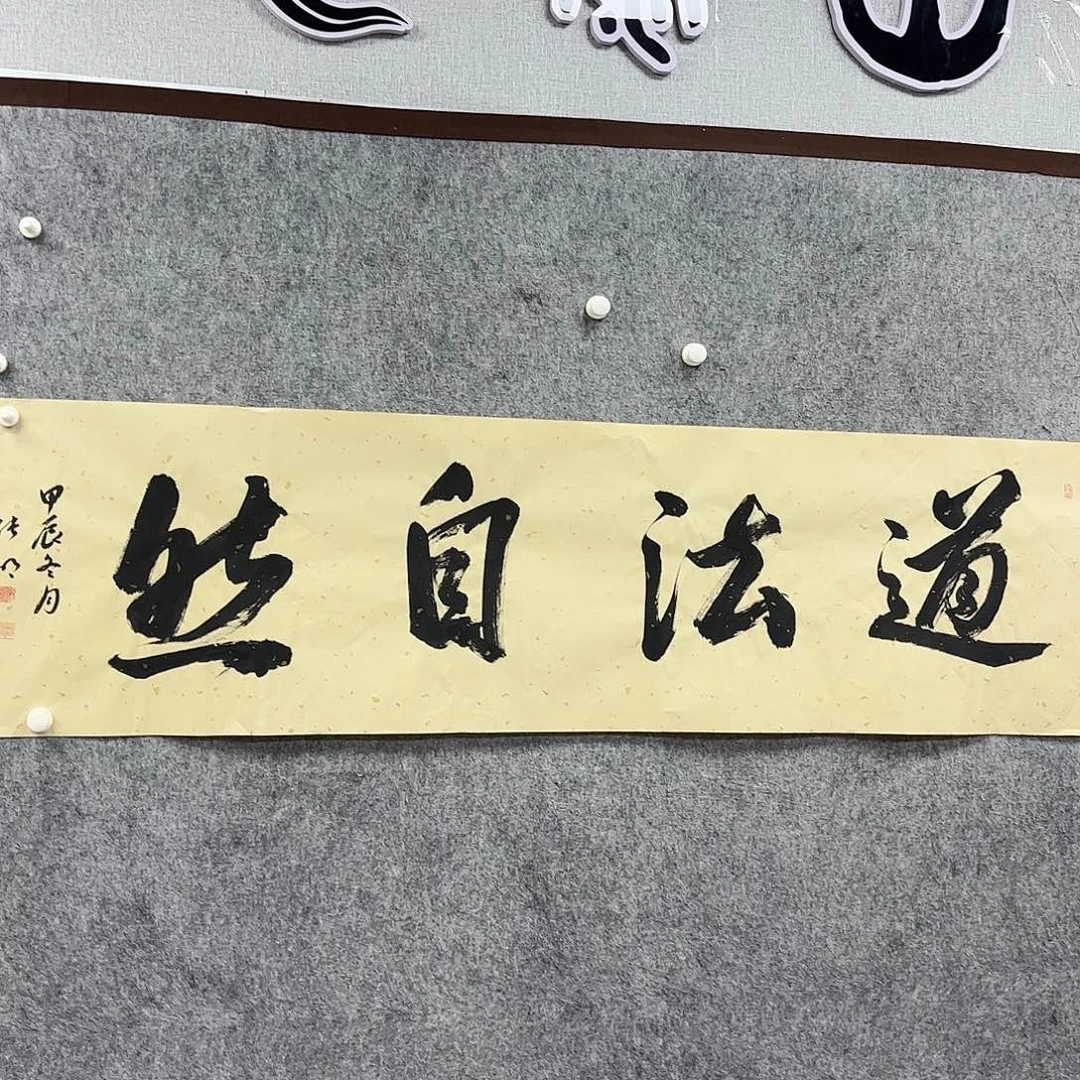 道法自然
甲辰冬月